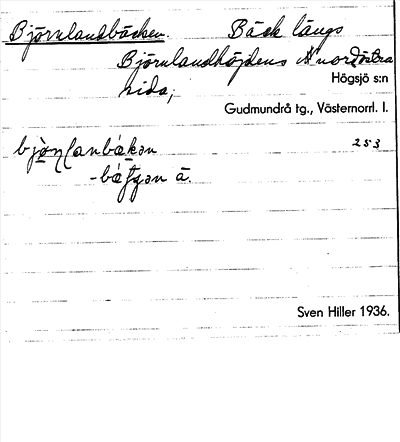 Björnlandbäcken. Bäck längs
Björnlandhöjdens nordöstra
sida;
Högsjö s:n
Gudmundrå tg., Västernorrl. l.
253
ā.
Sven Hiller 1936.